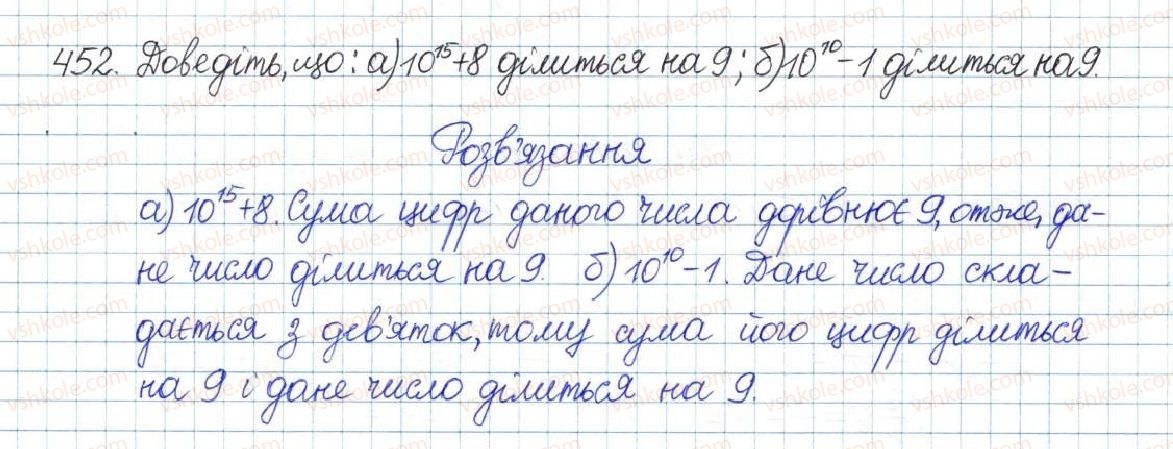 452. Доведіть, що: а) 10¹⁵+8 ділиться на 9; б) 10¹⁰-1 ділиться на 9.
Розв'язання
а) 10¹⁵+8. Сума цифр даного числа дорівнює 9, отже, да-
не число ділиться на 9. б) 10¹⁰-1. Дане число скла-
дається з дев'яток, тому сума його цифр ділиться
на 9 і дане число ділиться на 9.